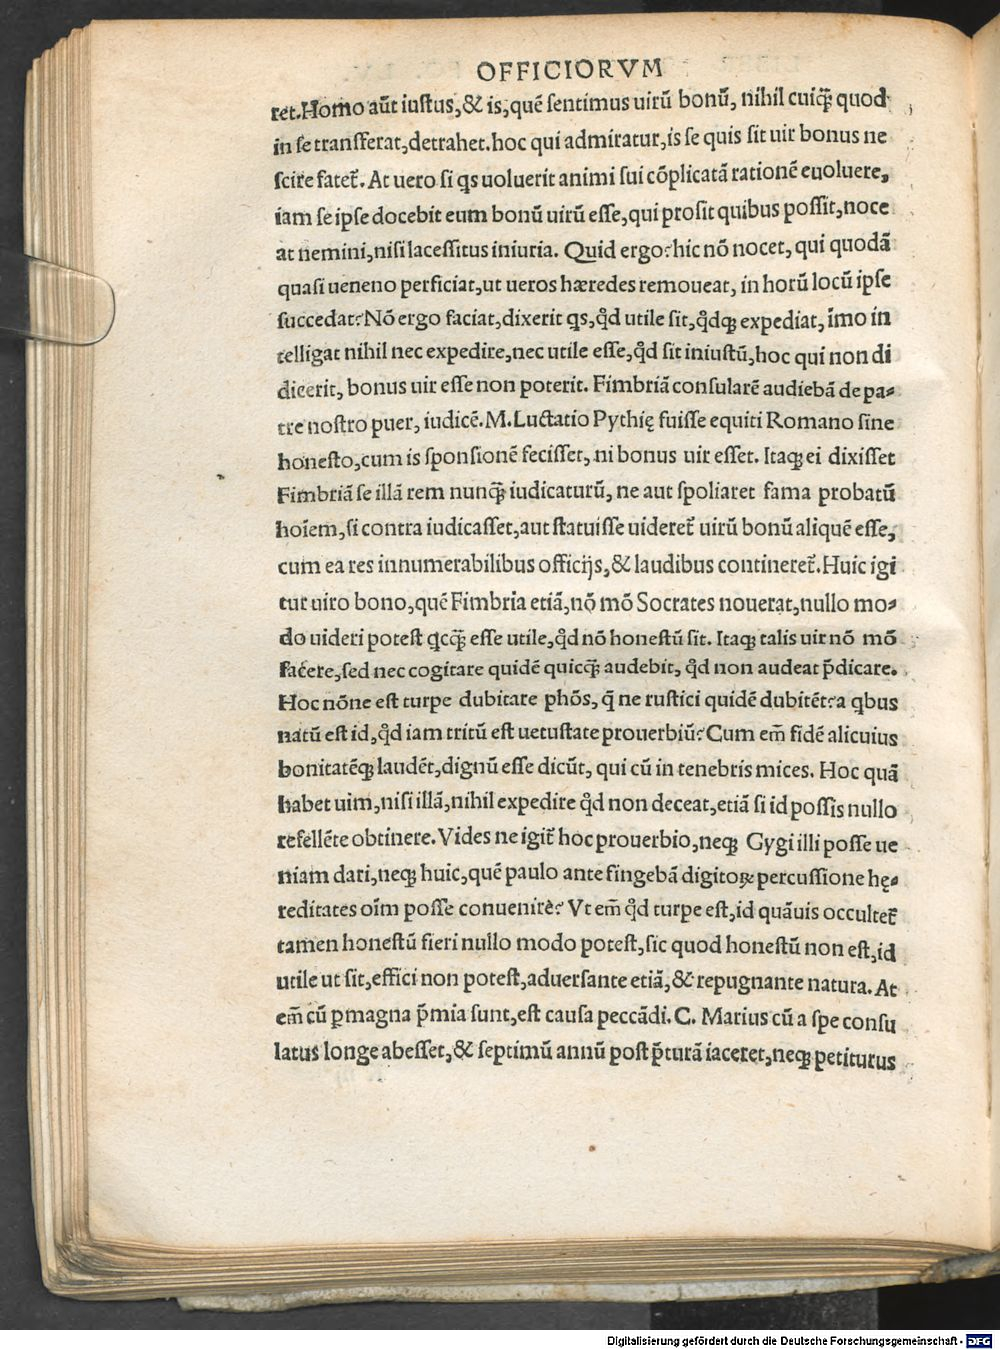 OFFICIORVM
ret. Homo aūt iustus, & is, quē sentimus uirū bonū, nihil cuiq̃ quod
in se transferat, detrahet. hoc qui admiratur, is se quis sit uir bonus ne
scire fatet̃. At uero si qs uoluerit animi sui cōplicatā rationē euoluere,
iam se ipse docebit eum bonū uirū esse, qui prosit quibus possit, noce
at nemini, nisi lacessitus iniuria. Quid ergo? hic nō nocet, qui quodā
quasi ueneno perficiat, ut ueros hæredes remoueat, in horū locū ipse
succedat? Nō ergo faciat, dixerit qs, qd̛ utile sit, qd̛q; expediat, imo in
telligat nihil nec expedire, nec utile esse, qd̛ sit iniustū, hoc qui non di
dicerit, bonus uir esse non poterit. Fimbriā consularē audiebā de pa-
tre nostro puer, iudicē. M. Luctatio Pythię fuisse equiti Romano sine
honesto, cum is sponsionē fecisset, ni bonus uir esset. Itaq; ei dixisset
Fimbriā se illā rem nunq̃ iudicaturū, ne aut spoliaret fama probatū
hoīem, si contra iudicasset, aut statuisse uideret̃ uirū bonū aliquē esse,
cum ea res innumerabilibus officijs, & laudibus contineret̃. Huic igi
tur uiro bono, quē Fimbria etiā, nō mō Socrates nouerat, nullo mo-
do uideri potest qcq̃ esse utile, qd̛ nō honestū sit. Itaq; talis uir nō mō
facere, sed nec cogitare quidē quicq̃ audebit, qd̛ non audeat p̄dicare.
Hoc nōne est turpe dubitare phōs, q̄ ne rustici quidē dubitēt? a qbus
natū est id, qd̛ iam tritū est uetustate prouerbiū? Cum em̄ fidē alicuius
bonitatēq; laudēt, dignū esse dicūt, qui cū in tenebris mices. Hoc quā
habet uim, nisi illā, nihil expedire qd̛ non deceat, etiā si id possis nullo
refellēte obtinere. Vides ne igit̃ hoc prouerbio, neq; Gygi illi posse ue
niam dari, neq; huic, quē paulo ante fingebā digitoꝝ percussione hę-
reditates oīm posse conuenire? Vt em̄ qd̛ turpe est, id quāuis occultet̃
tamen honestū fieri nullo modo potest, sic quod honestū non est, id
utile ut sit, effici non potest, aduersante etiā, & repugnante natura. At
em̄ cū ꝑmagna p̄mia sunt, est causa peccādi. C. Marius cū a spe consu
latus longe abesset, & septimū annū post p̄turā iaceret, neq; petiturus
Digitalisierung gefördert durch die Deutsche Forschungsgemeinschaft - DFG